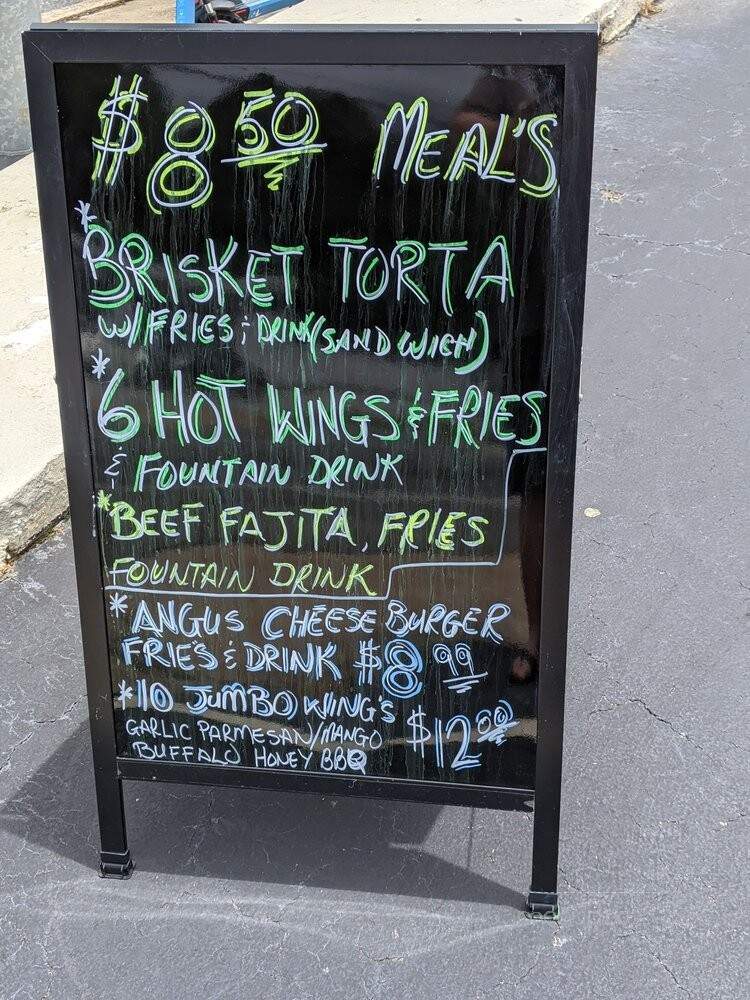 $8 50 MEAL'S
* BRISKET TORTA
W/ FRIES & DRINK (SANDWICH)
* 6 HOT WINGS & FRIES
& FOUNTAIN DRINK
* BEEF FAJITA, FRIES
FOUNTAIN DRINK
* ANGUS CHEESE BURGER
FRIE'S & DRINK $8 99
* 10 JUMBO WING'S
GARLIC PARMESAN/MANGO $12 00
BUFFALO HONEY BBQ